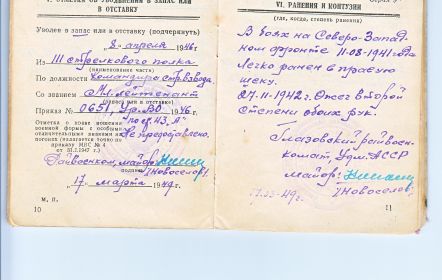 V. ОТМЕТКИ ОБ УВОЛЬНЕНИИ В ЗАПАС ИЛИ
В ОТСТАВКУ
Уволен в запас или в отставку (подчеркнуть)
8 апреля 1946 г.
Из III стрелкового полка
(наименование части)
По должности Командира стр. взвода
Со званием Мл. лейтенант
(запаса или в отставке)
Приказ № 0651, УрВО 1946
Отметка о праве ношения
военной формы с особыми
отличительными знаками на
погонах (делается только по
приказу МВС № 4
от III.1947 г.)
по ст. 43, А.
Не предоставлено,
Райвоенком, майор
/Новоселов/.
"17" марта 1949 г.
М. П.
10
VI. РАНЕНИЯ И КОНТУЗИИ
(где, когда, степень ранения)
В боях на Северо-Запад-
ном фронте 11-08-1941 года
Легко ранен в правую
щеку.
27.11-1942 г. Ожег второй
степени обоих рук.
Глазовский райвоен-
комат, Удм. АССР
майор:
/Новоселов/
17.03-49 г.
11